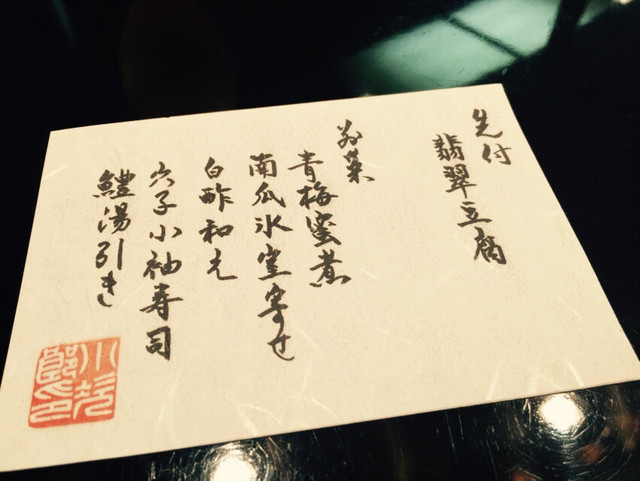 先付
翡翠豆腐
前菜
青梅蜜煮
南瓜氷室寄せ
白酢和え
穴子小袖寿司
鱧湯引き